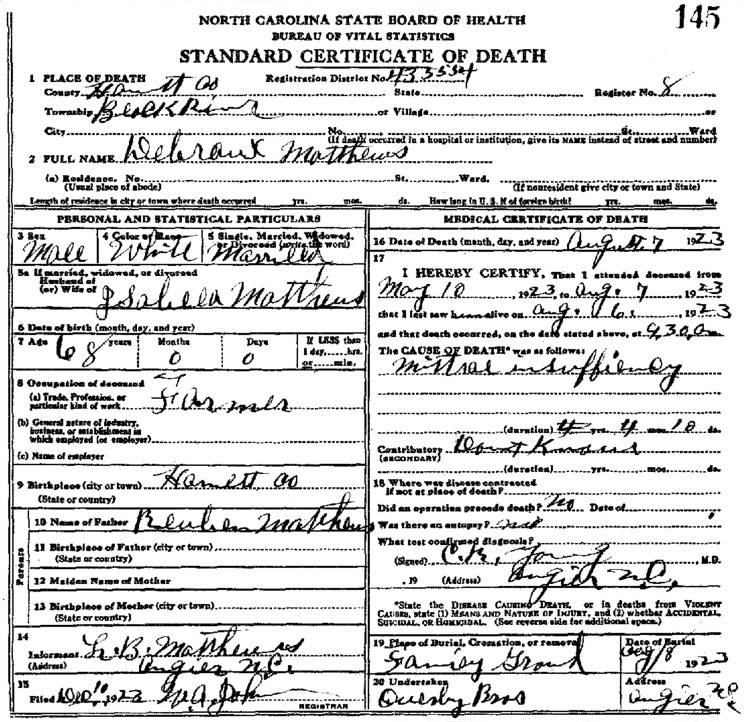 145
NORTH CAROLINA STATE BOARD OF HEALTH
BUREAU OF VITAL STATISTICS
STANDARD CERTIFICATE OF DEATH
1 PLACE OF DEATH Registration District No.
County Harnett Co State Register No. 8
Township or Village or
City No. St. Ward
(If death occurred in a hospital or institution, give its NAME instead of street and number)
2 FULL NAME Matthews
(a) Residence. No. St. Ward.
(Usual place of abode) (If nonresident give city or town and State)
Length of residence in city or town where death occurred yrs. mos. ds. How long in U. S. if of foreign birth? yrs. mos. ds.
PERSONAL AND STATISTICAL PARTICULARS
3 Sex 4 Color or Race 5 Single, Married, Widowed, or Divorced (write the word)
Male White Married
5a If married, widowed, or divorced
Husband of
(or) Wife of Isabella Matthews
6 Date of birth (month, day, and year)
7 Age 68 years Months 0 Days 0 If LESS than 1 day, hrs. or min.
8 Occupation of deceased
(a) Trade, Profession, or particular kind of work Farmer
(b) General nature of industry, business, or establishment in which employed (or employer)
(c) Name of employer
9 Birthplace (city or town) Harnett Co
(State or country)
Parents
10 Name of Father Reuben Matthews
11 Birthplace of Father (city or town)
(State or country)
12 Maiden Name of Mother
13 Birthplace of Mother (city or town)
(State or country)
14
Informant L. B. Matthews
(Address) Angier N.C.
15
Filed 1923 REGISTRAR
MEDICAL CERTIFICATE OF DEATH
16 Date of Death (month, day, and year) August 7 1923
17
I HEREBY CERTIFY, That I attended deceased from
May 10, 1923, to Aug. 7, 1923
that I last saw him alive on Aug. 6, 1923
and that death occurred, on the date stated above, at
The CAUSE OF DEATH* was as follows:
Mitral insufficiency
(duration) 4 yrs. 4 mos. 10 ds.
Contributory Dont Know
(SECONDARY)
(duration) yrs. mos. ds.
18 Where was disease contracted
if not at place of death?
Did an operation precede death? No Date of
Was there an autopsy? no
What test confirmed diagnosis?
(Signed) Young M.D.
, 19 (Address) Angier N.C.
*State the DISEASE CAUSING DEATH, or in deaths from VIOLENT
CAUSES, state (1) MEANS AND NATURE OF INJURY, and (2) whether ACCIDENTAL,
SUICIDAL, OR HOMICIDAL. (See reverse side for additional space.)
19 Place of Burial, Cremation, or removal Date of Burial
Family Aug 8 1923
20 Undertaker Address
Bros Angier NC